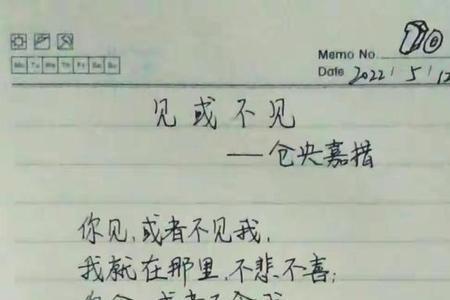 Memo No. 20
Mo Tu We Th Fr Sa Su
Date 2022 / 5 / 12
见或不见
——仓央嘉措
你见,或者不见我,
我就在那里,不悲不喜;